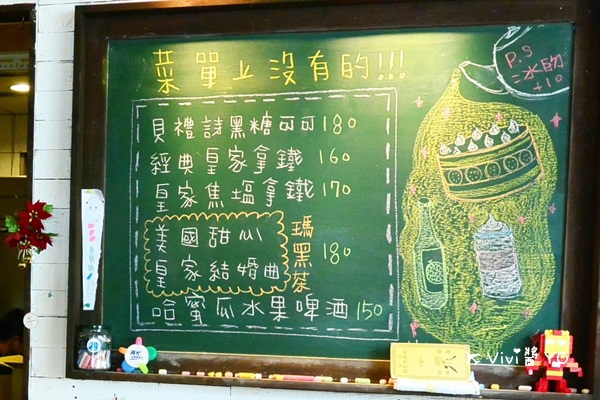 菜單上沒有的!!!
貝禮詩黑糖可可180
經典皇家拿鐵 160
皇家焦塩拿鐵170
美國甜心
皇家結婚曲
瑪黑茶 180
哈蜜瓜水果啤酒150
P.S
冰的
+10
Vivi醬 YO